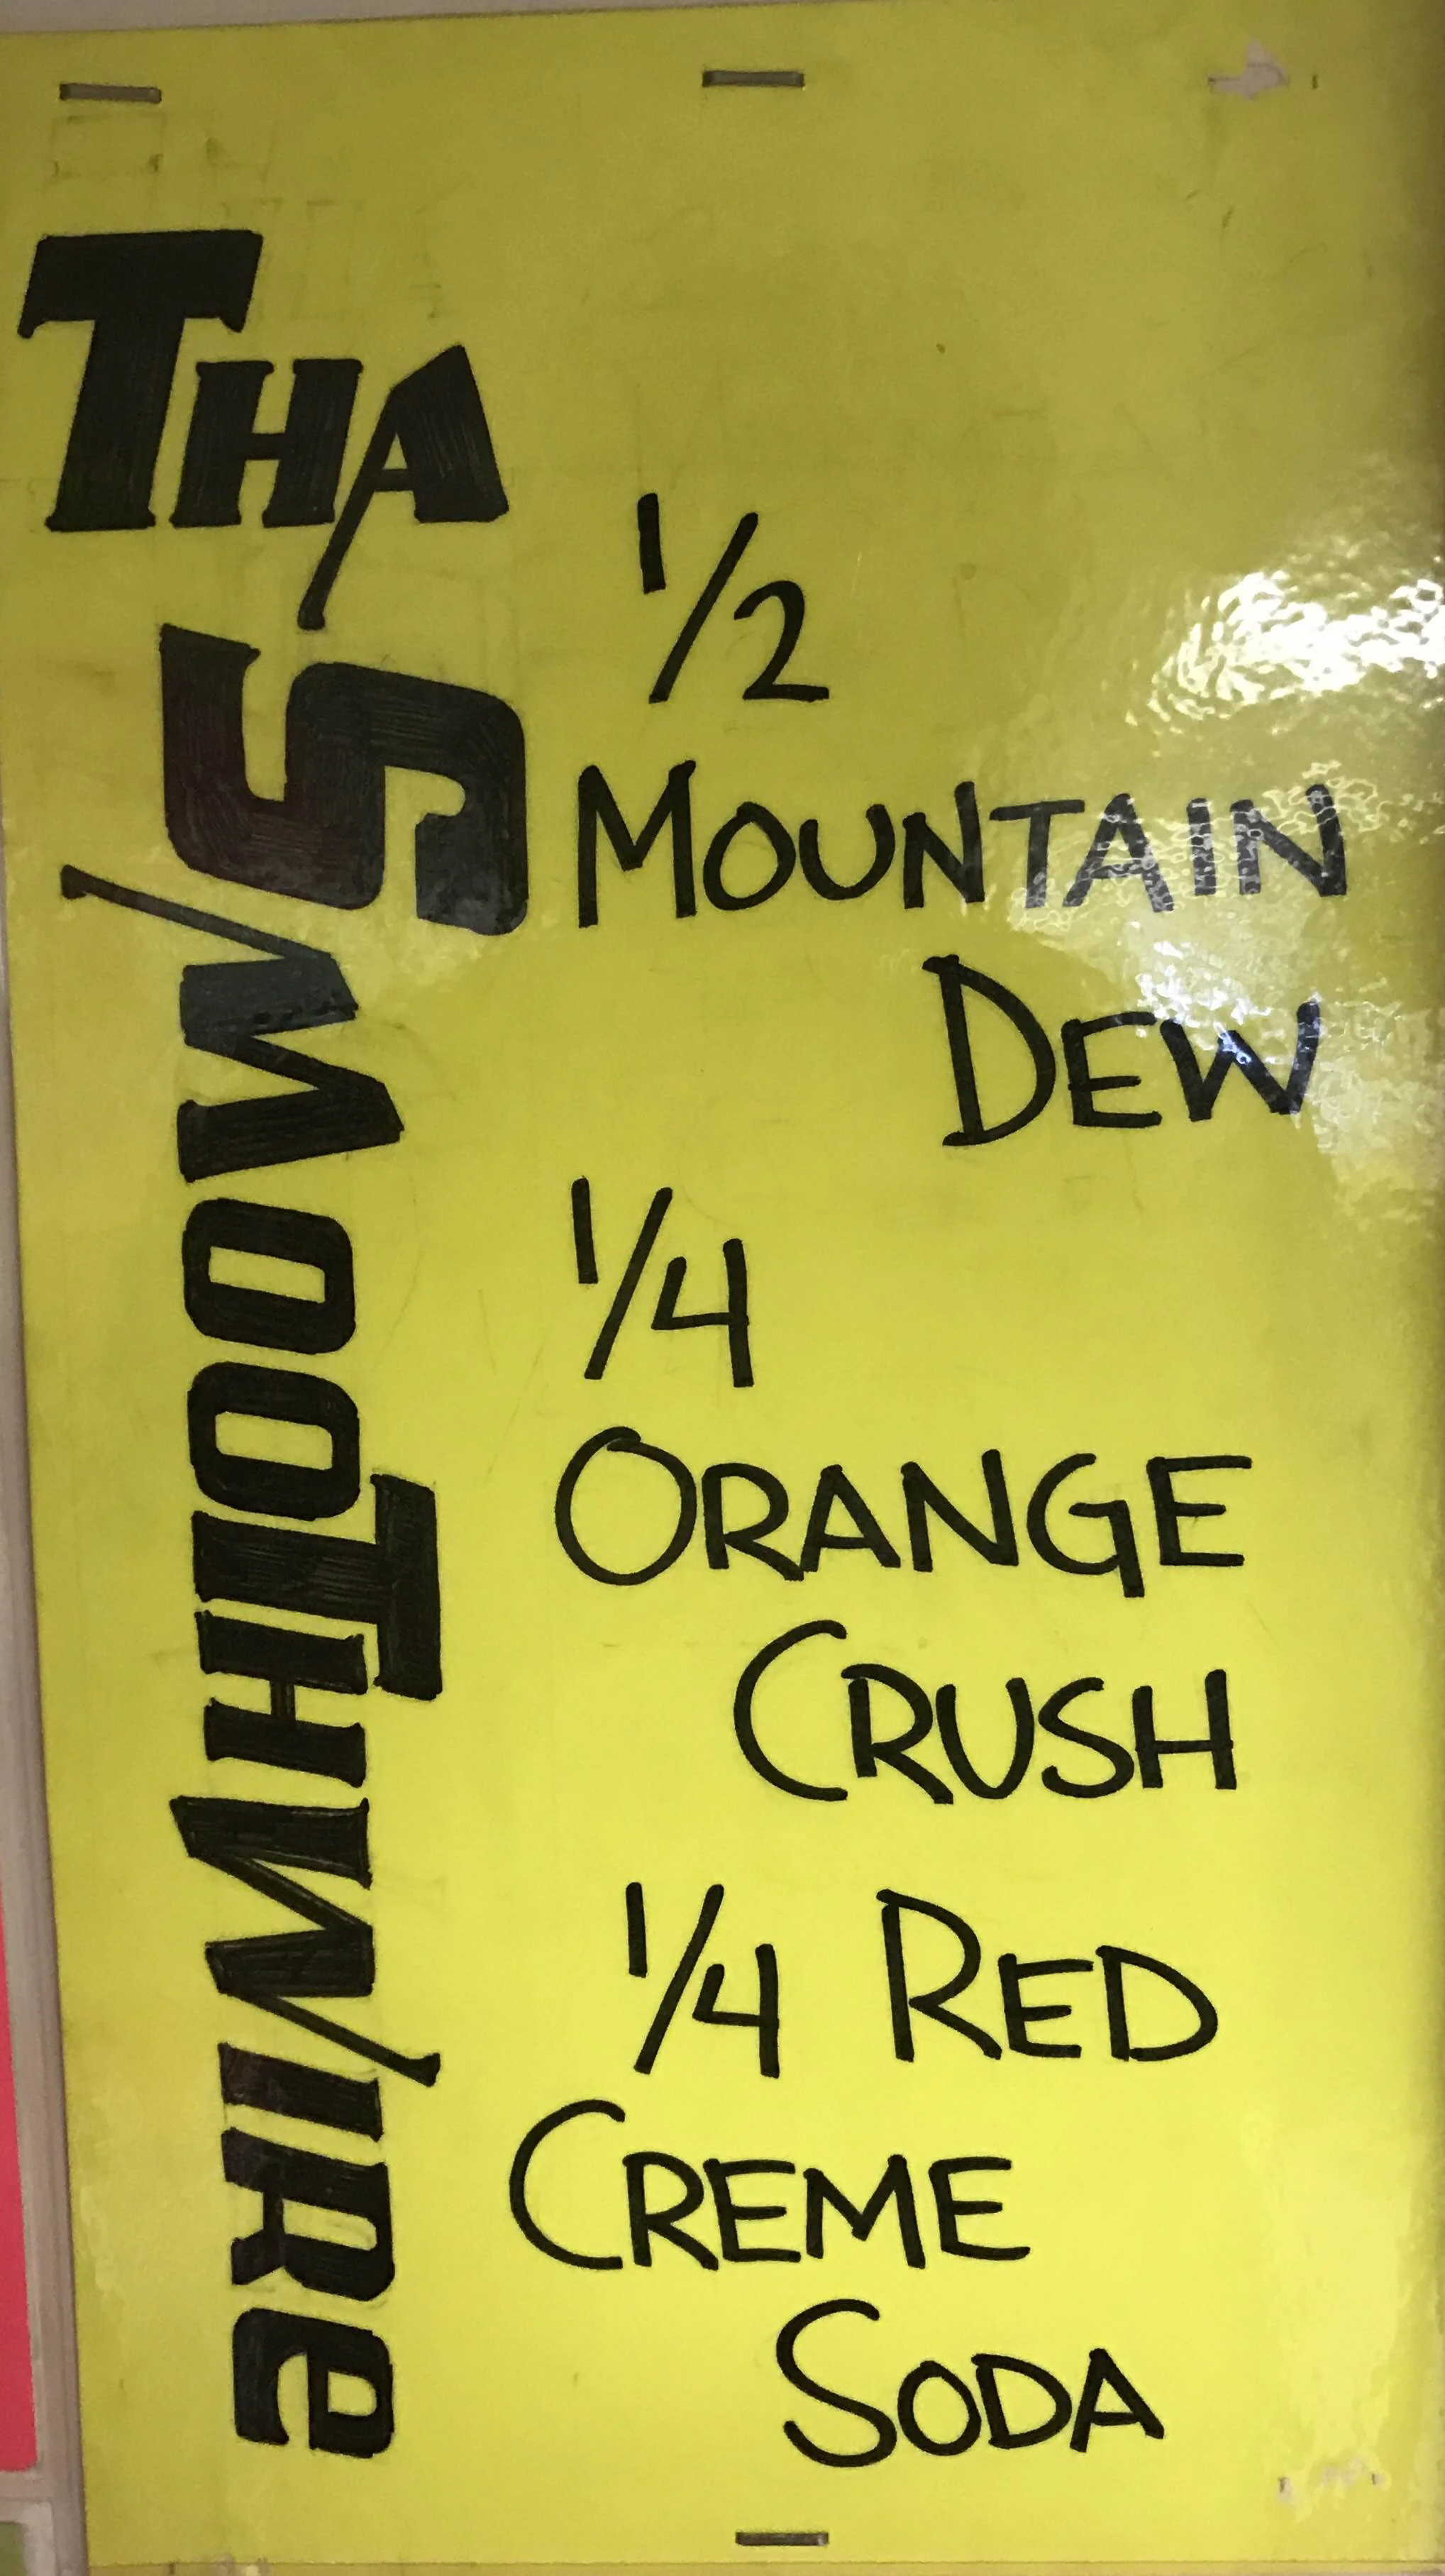 THA
SMOOTHWIRe
1/2
MOUNTAIN
DEW
1/4
ORANGE
CRUSH
1/4 RED
CREME
SODA